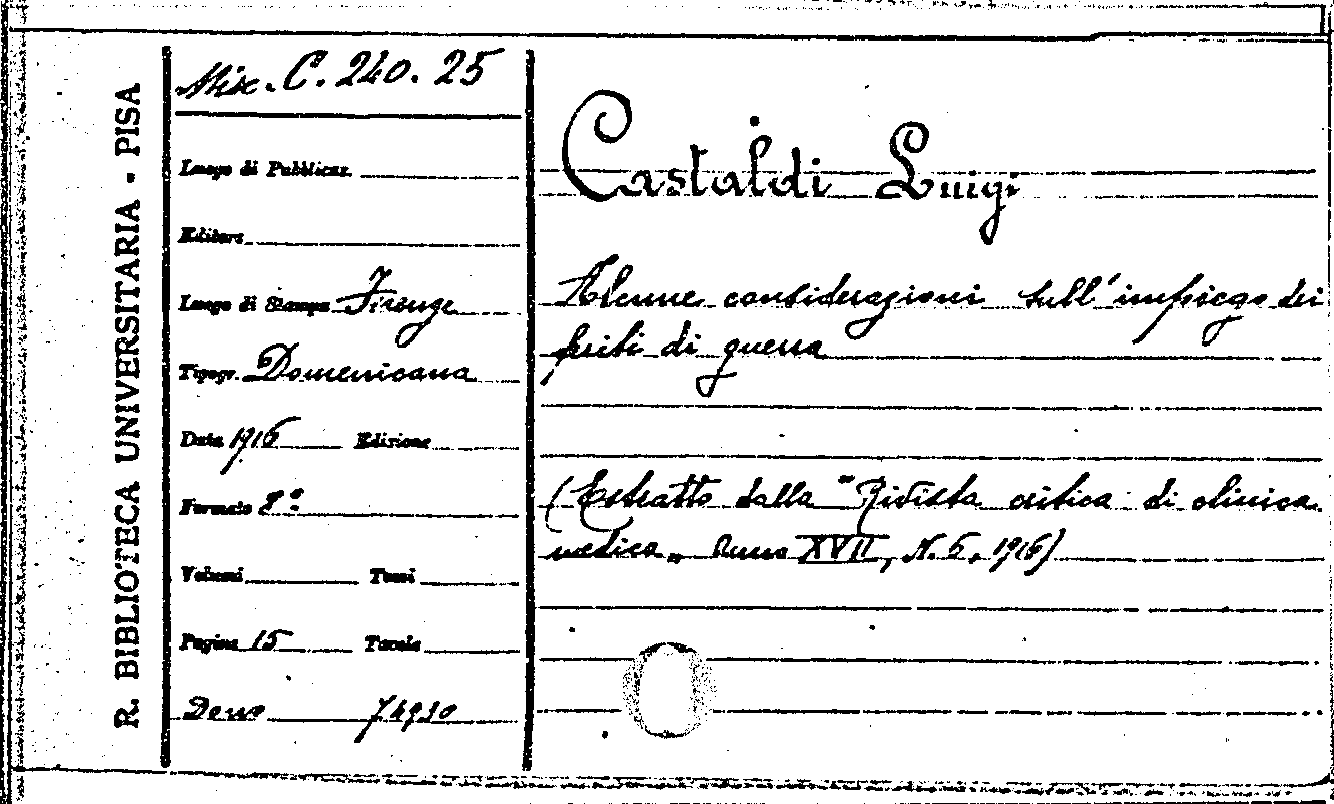 R. BIBLIOTECA UNIVERSITARIA - PISA
Misc. C. 240. 25
Luogo di Pubblicaz.
Editore
Luogo di Stampa Firenze
Tipogr. Domenicana
Data 1916 Edizione
Formato 8º
Volumi Tomi
Pagine 15 Tavole
Dono
Castaldi Luigi
Alcune considerazioni sull'impiego dei
feriti di guerra
(Estratto dalla "Rivista critica di clinica
medica„ Anno XVII, N. 6, 1916)